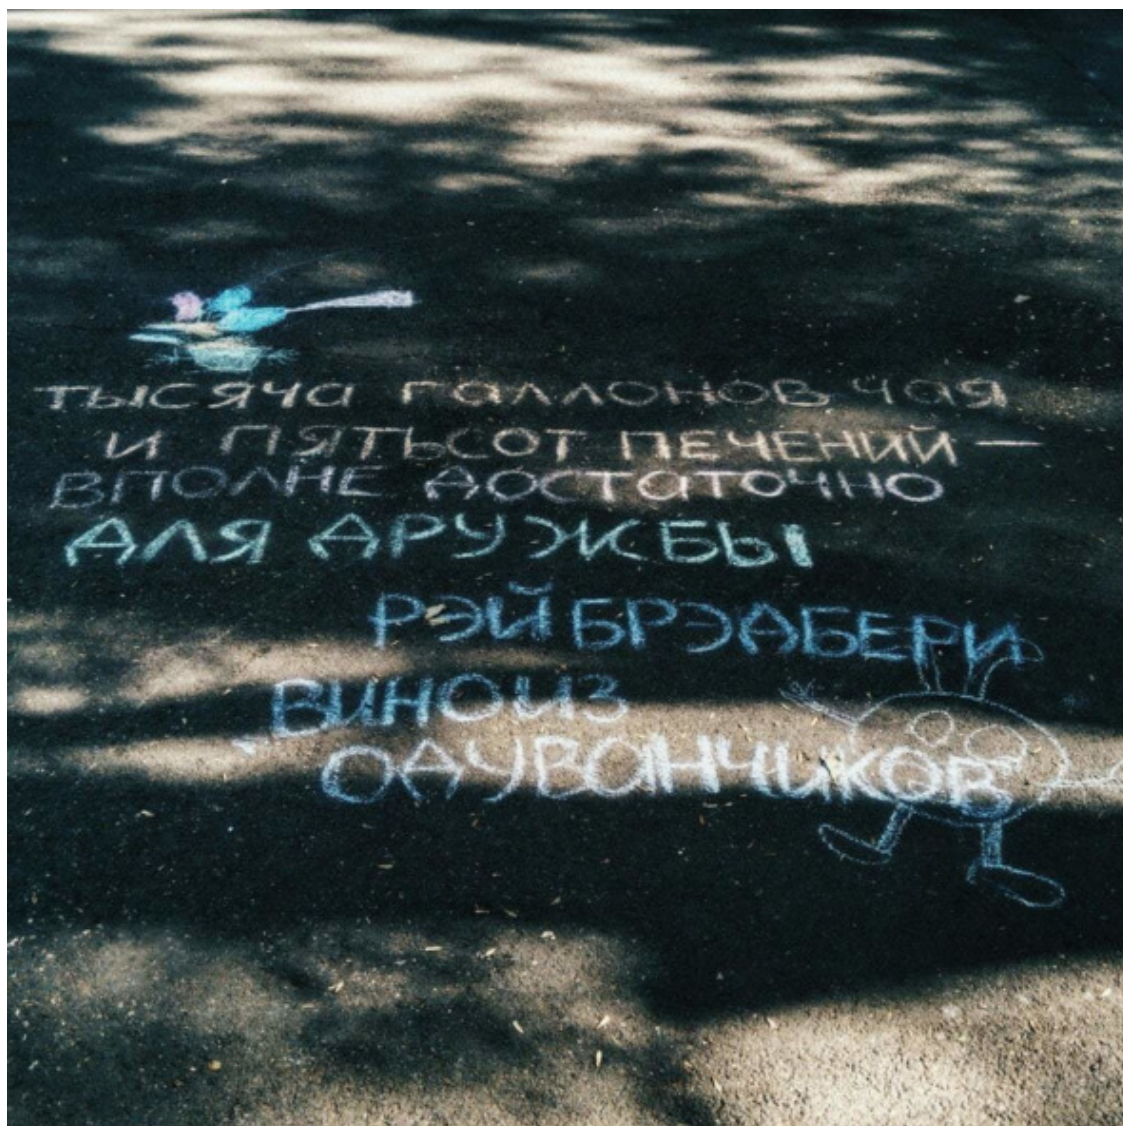 тысяча галлонов чая
и пятьсот печений —
вполне достаточно
для дружбы
Рэй Брэдбери
Вино из
одуванчиков